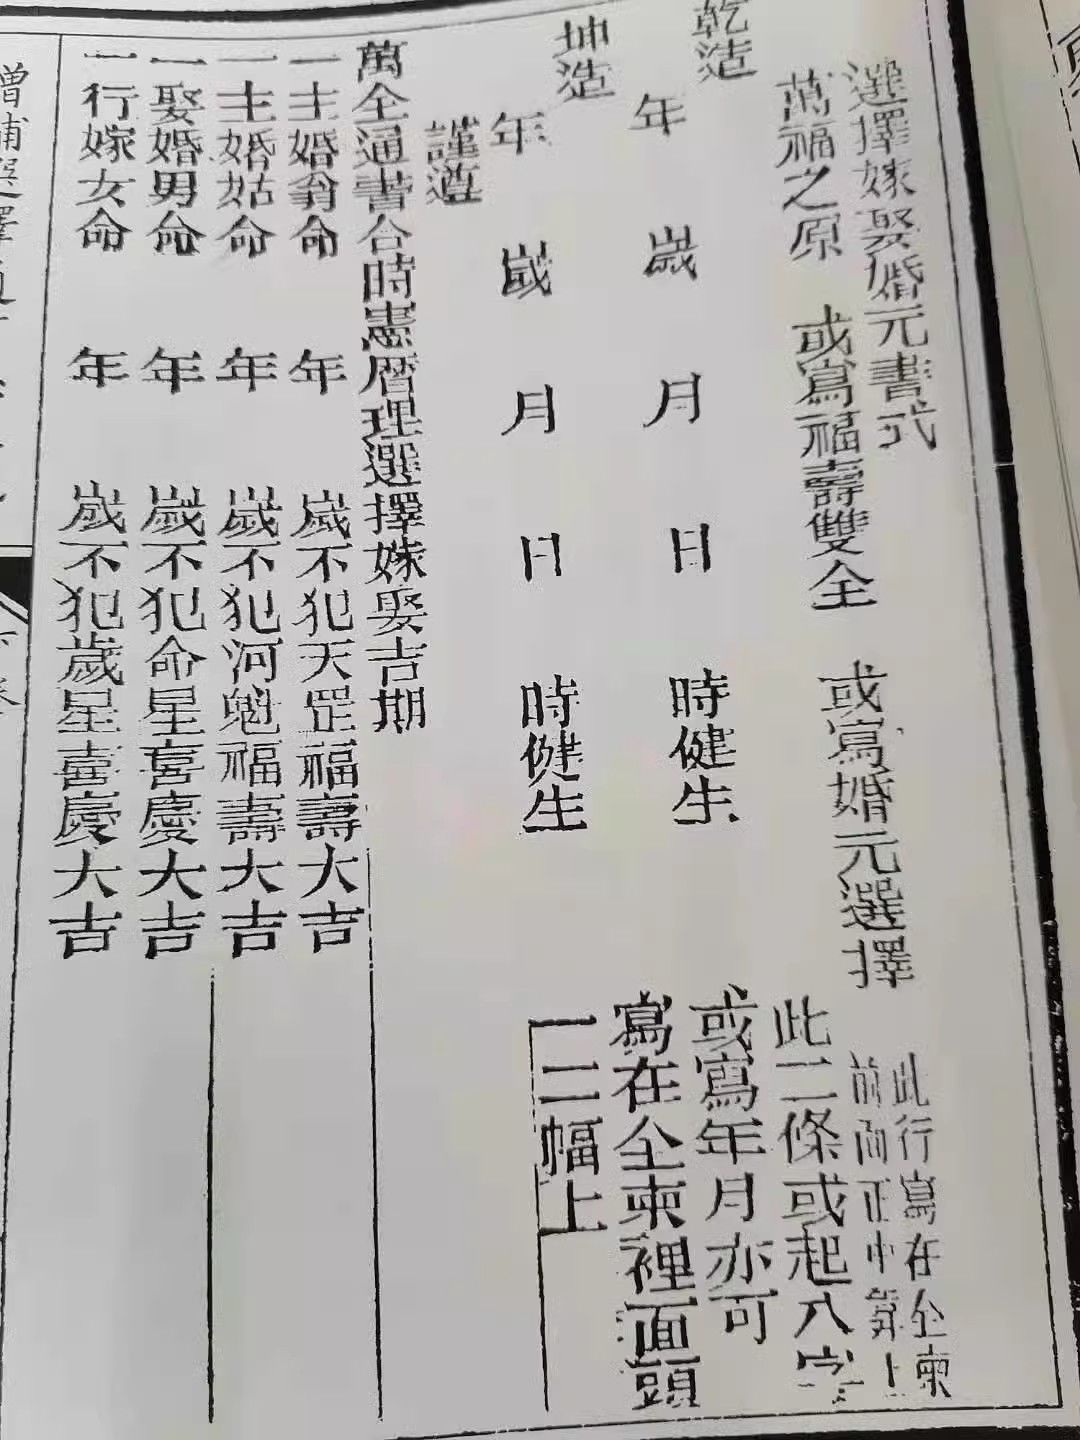 選擇嫁娶婚元書式
萬福之原 或寫福壽雙全 或寫婚元選擇
此行寫在全柬
前面正中
乾造 年 歲 月 日 時健生
坤造 年 歲 月 日 時健生
此二條或起八字
或寫年月亦可
寫在全柬裡面頭
一二幅上
謹遵
萬全通書合時憲曆理選擇嫁娶吉期
一主婚翁命 年 歲不犯天罡福壽大吉
一主婚姑命 年 歲不犯河魁福壽大吉
一娶婚男命 年 歲不犯命星喜慶大吉
一行嫁女命 年 歲不犯歲星喜慶大吉
增補選擇通